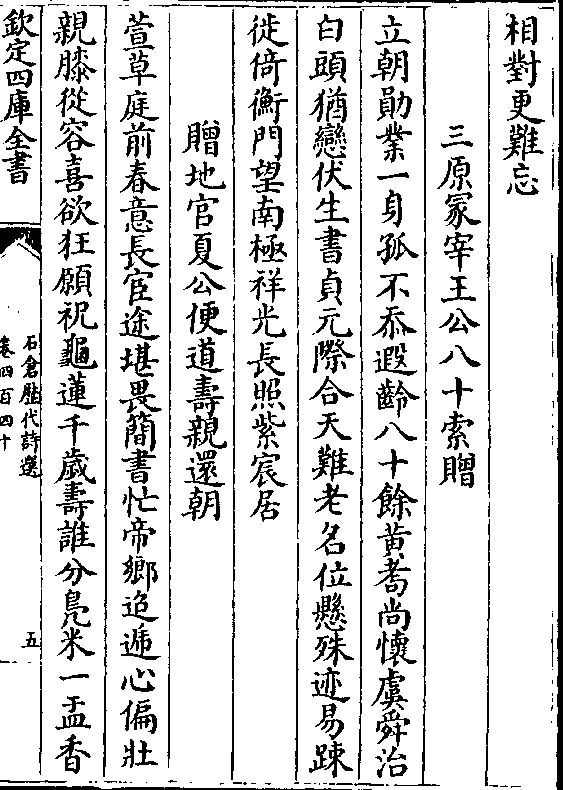 相對更難忘
三原冡宰王公八十索贈
立朝勛業一身孤不忝遐齡八十餘黄耉尚懷虞舜治
白頭猶戀伏生書貞元際合天難老名位懸殊迹易踈
徙倚衡門望南極祥光長照紫宸居
贈地官夏公便道壽親還朝
萱草庭前春意長宦途堪畏簡書忙帝鄉迢遞心偏壯
親膝從容喜欲狂願祝龜蓮千歲壽誰分鳬米一盂香
欽定四庫全書
石倉歴代詩選
卷四百四十
五